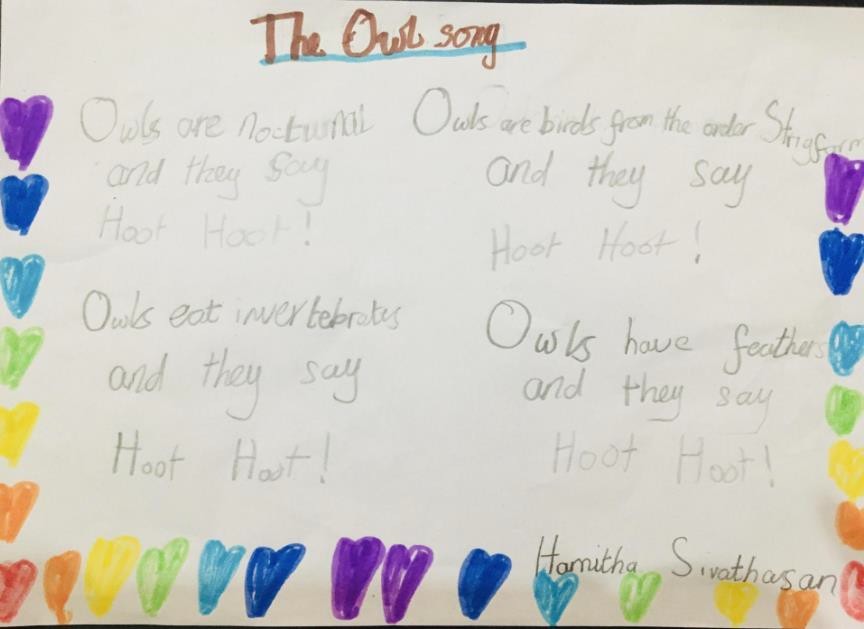 The Owl song
Owls are nocturnal
and they say
Hoot Hoot!
Owls eat invertebrates
and they say
Hoot Hoot!
Owls are birds from the order Strigform
and they say
Hoot Hoot!
Owls have feathers
and they say
Hoot Hoot!
Hamitha Sivathasan